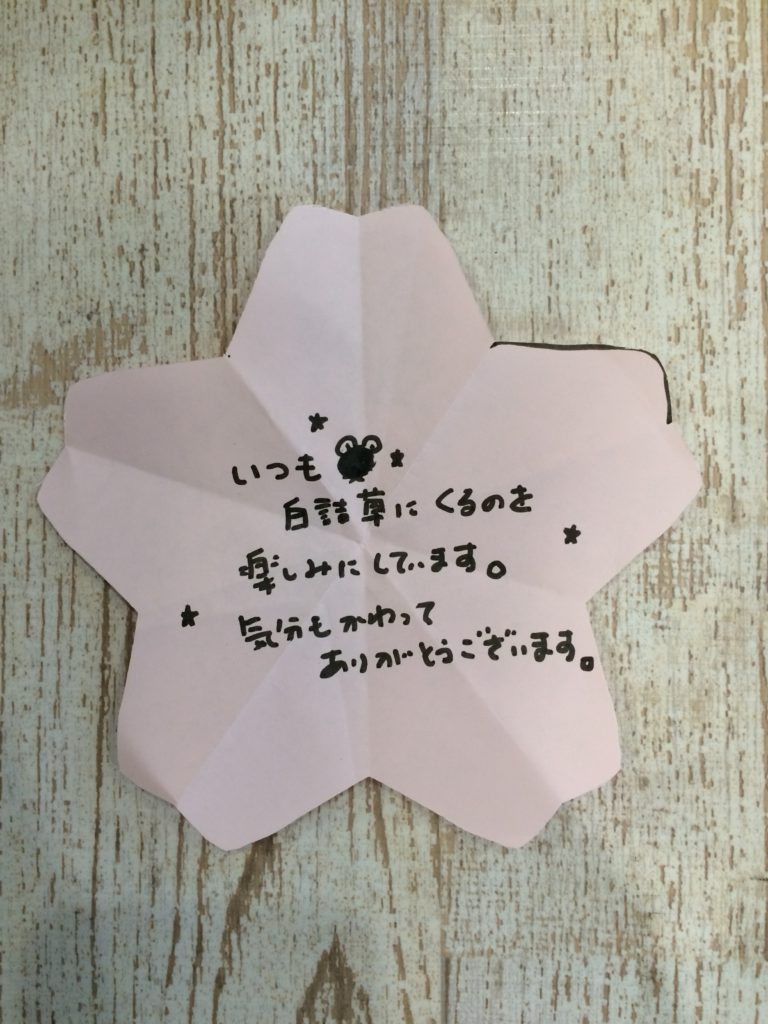 いつも
白詰草にくるのを
楽しみにしています。
気分もかわって
ありがとうございます。